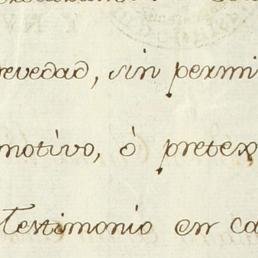 revedad, sin permi
motivo, ó pretex
Testimonio en ca